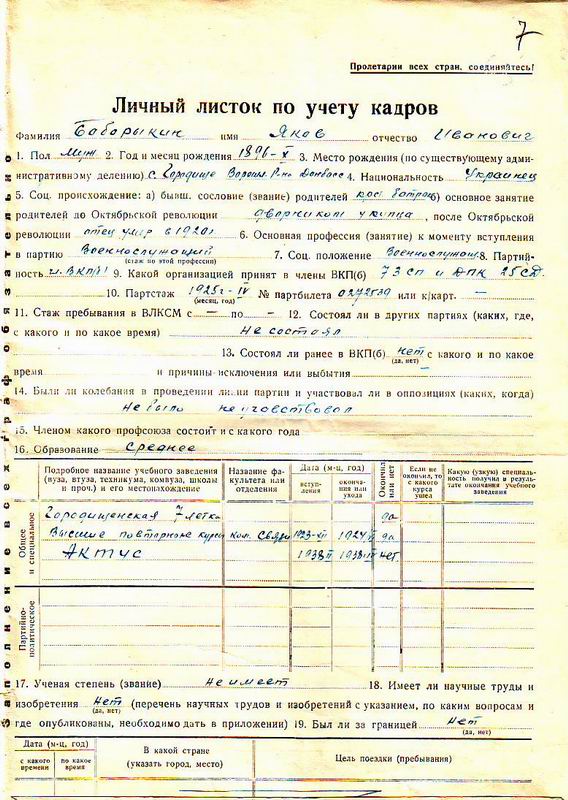 7
Пролетарии всех стран, соединяйтесь!
Личный листок по учету кадров
Фамилия Бабарыкин имя Яков отчество Иванович
1. Пол муж. 2. Год и месяц рождения 1896-X 3. Место рождения (по существующему адми-
нистративному делению) с. Городище Ворошил. р-на Донбасс 4. Национальность Украинец
5. Соц. происхождение: а) бывш. сословие (звание) родителей б) основное занятие
родителей до Октябрьской революции дворником у купца, после Октябрьской
революции отец умер в 1920г 6. Основная профессия (занятие) к моменту вступления
в партию Военнослужащий 7. Соц. положение Военнослужащ 8. Партий-
(стаж по этой профессии)
ность ч. ВКП(б) 9. Какой организацией принят в члены ВКП(б) 73 сп и ДПК 25 СД
10. Партстаж 1925г-IV № партбилета 0272539 или к/карт. —
(месяц, год)
11. Стаж пребывания в ВЛКСМ с — по — 12. Состоял ли в других партиях (каких, где,
с какого и по какое время) Не состоял
13. Состоял ли ранее в ВКП(б) нет с какого и по какое
(да, нет)
время и причины исключения или выбытия —
14. Были ли колебания в проведении линии партии и участвовал ли в оппозициях (каких, когда)
Не было не участвовал
15. Членом какого профсоюза состоит и с какого года
16. Образование Среднее
Подробное название учебного заведения (вуза, втуза, техникума, комвуза, школы и проч.) и его местонахождение
Название факультета или отделения
Дата (м-ц, год)
вступления
окончания или ухода
Окончил или нет
Если не окончил, то с какого курса ушел
Какую (узкую) специальность получил в результате окончания учебного заведения
Общее и специальное
Городищенская 7 летка да
Высшие повторные курсы Ком. Связи 1923-XI 1924 да
АКТУС 1938 1938 нет.
Партийно-политическое
17. Ученая степень (звание) Не имеет 18. Имеет ли научные труды и
изобретения Нет (перечень научных трудов и изобретений с указанием, по каким вопросам и
(да, нет)
где опубликованы, необходимо дать в приложении) 19. Был ли за границей Нет
(да, нет)
Дата (м-ц, год)
с какого времени
по какое время
В какой стране (указать город, место)
Цель поездки (пребывания)
Заполнение всех граф обязательно